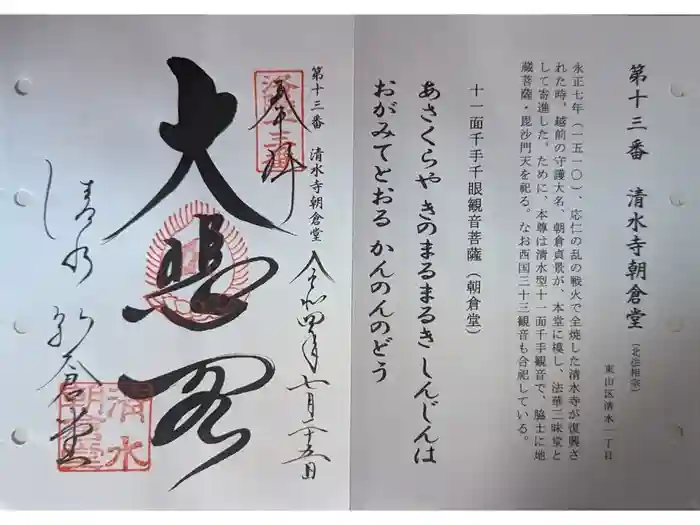 第十三番　清水寺朝倉堂（北法相宗）
東山区清水一丁目
永正七年（一五一〇）、応仁の乱の戦火で全焼した清水寺が復興さ
れた時，越前の守護大名、朝倉貞景が、本堂に模し、法華三昧堂と
して寄進した。ために、本尊は清水型十一面千手観音で、脇士に地
蔵菩薩・毘沙門天を祀る。なお西国三十三観音も合祀している。
十一面千手千眼観音菩薩（朝倉堂）
あさくらや きのまるまるき しんじんは
おがみてとおる かんのんのどう
第十三番　清水寺朝倉堂
令和四年七月二十五日
奉拝
大悲閣
清水寺
朝倉堂
清水
朝倉堂